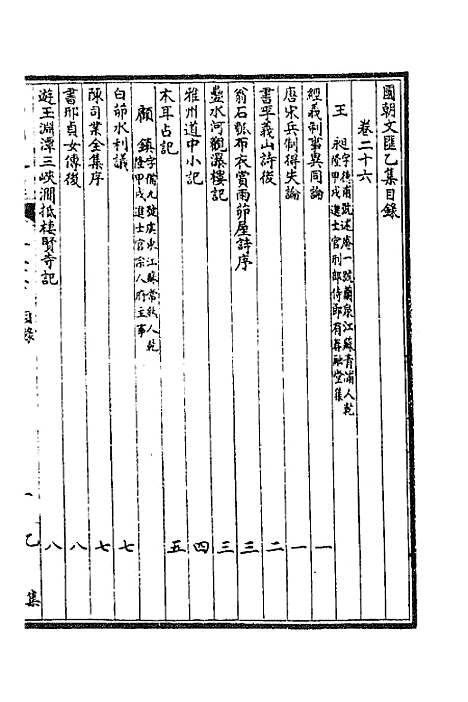 國朝文匯乙集目錄
卷二十六
王 昶 字德甫號述庵一號蘭泉江蘇青浦人乾隆甲戌進士官刑部侍郎有春融堂集
經義制事異同論 一
唐宋兵制得失論 一
書李義山詩後 二
翁石瓠布衣賞雨茆屋詩序 三
盤水河觀瀑樓記 三
雅州道中小記 四
木耳占記 五
顧 鎮 字備九號虞東江蘇常熟人乾隆甲戌進士官宗人府主事
白茆水利議 七
陳司業全集序 七
書邢貞女傳後 八
遊玉淵潭三峽澗抵棲賢寺記 八
目錄
一 乙集